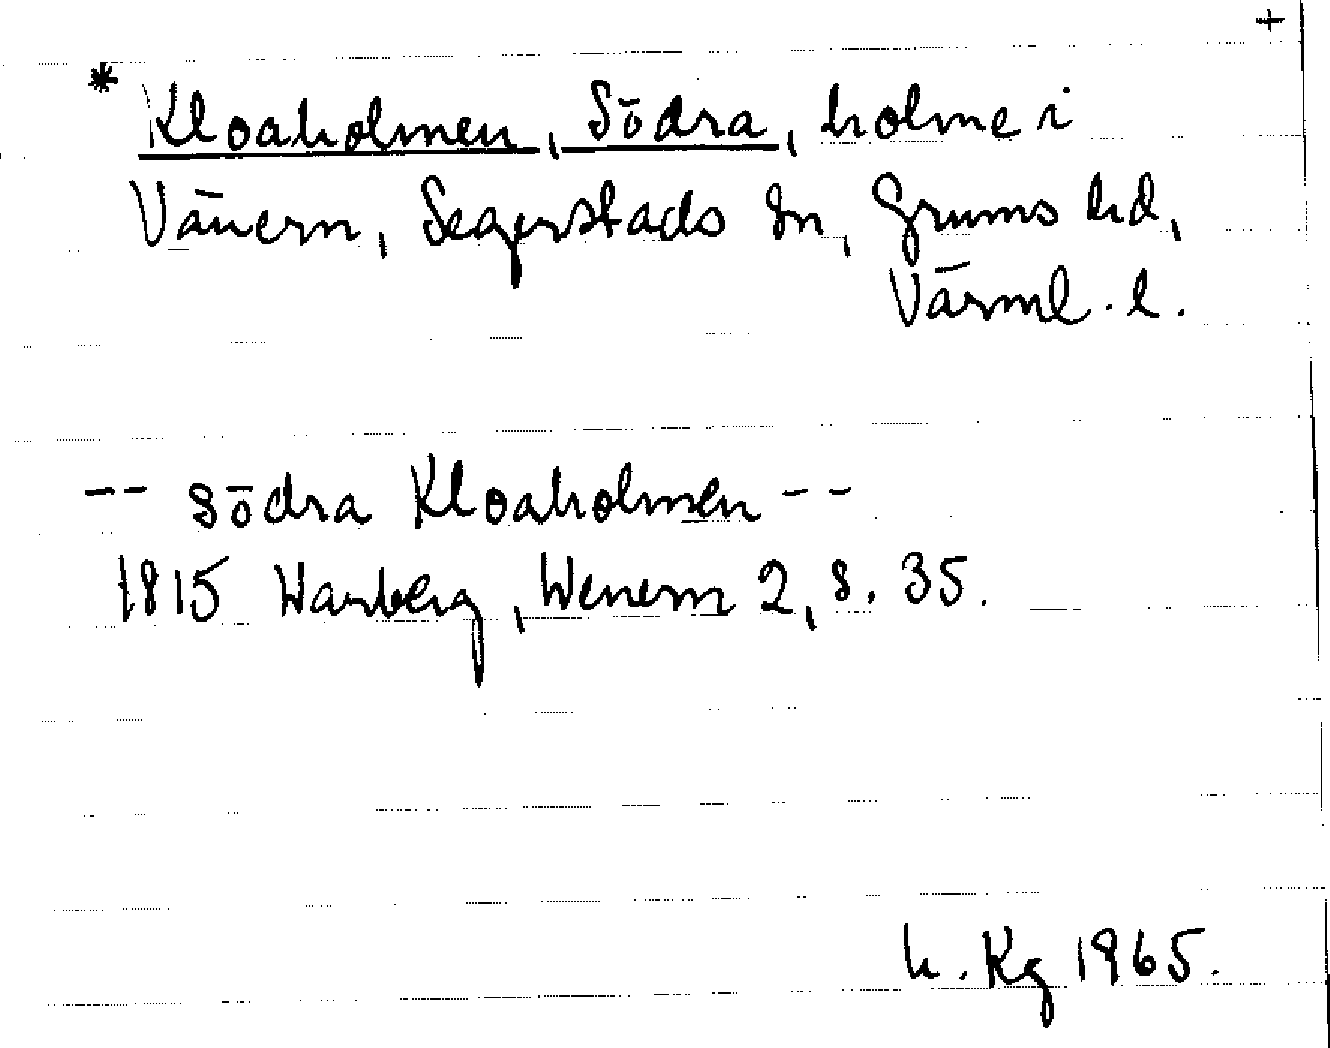 +
* Kloaholmen, Södra, holme i
Vänern, Segerstads sn, Grums hd,
Värml. l.
-- södra Kloaholmen --
1815 Warberg, Wenern 2, s. 35.
h. Kg 1965.